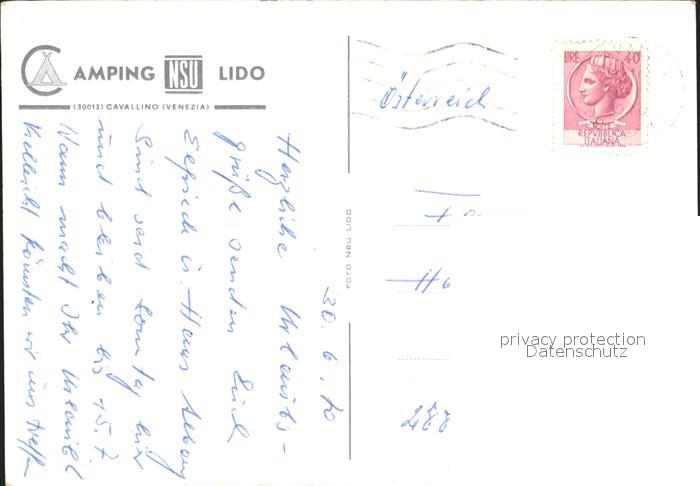 CAMPING NSU LIDO
(30013) CAVALLINO (VENEZIA)
Österreich
LIRE 40
REPVBBLICA
ITALIANA
FOTO NSU LIDO
30. 6. 70
Herzliche Urlaubs-
grüße senden Euch
u. Hans
Sind seid Sonntag hier
und bleiben bis 15. 7.
Wann macht Ihr Urlaub?
Vielleicht könnten wir uns treffen
privacy protection
Datenschutz